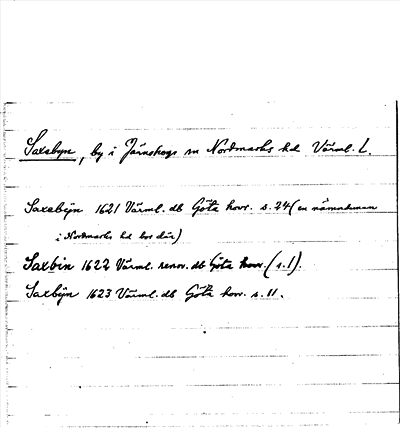 Saxebyn, by i Järnskogs sn Nordmarks hd Värml. L.
Saxebÿn 1621 Värml. db Göta hovr. s. 24 (en nämndeman
i Nordmarks hd bor där)
Saxbin 1622 Värml. renov. db Göta hovr. (s. 1).
Saxbÿn 1623 Värml. db Göta hovr. s. 11.